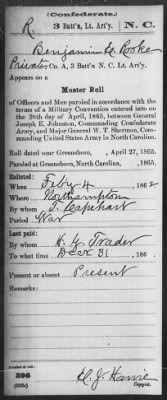 (Confederate.)
R 3 Batt'n, Lt. Art'y. N. C.
Benjamin H Rooke
Private, Co. A, 3 Batt'n N. C. Lt. Art'y.
Appears on a
Muster Roll
of Officers and Men paroled in accordance with the
terms of a Military Convention entered into on
the 26th day of April, 1865, between General
Joseph E. Johnston, Commanding Confederate
Army, and Major General W. T. Sherman, Com-
manding United States Army in North Carolina.
Roll dated near Greensboro, April 27, 1865.
Paroled at Greensboro, North Carolina, , 1865.
Enlisted:
When Feby 4 , 1862
Where Northampton
By whom J. Capehart
Period War
Last paid:
By whom W. H. Trader
To what time Dec 31 , 186
Present or absent Present
Remarks:
Number of roll:
396
Copyist.